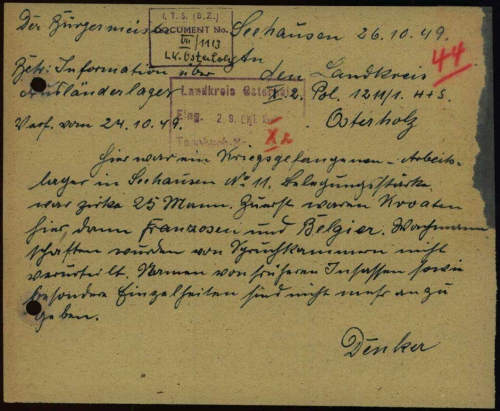 I.T.S. (B.Z.)
DOCUMENT No.
VII/1113
L.K. Osterholz
Der Bürgermeister Seehausen 26.10.49.
An
Betr: Information über den Landkreis
44
Ausländerlager X 2. Pol. 1211/1. 4+5.
Landkreis Osterholz
Eing. 28. Okt.
Verf. vom 24.10.49. Osterholz
X 2
Hier war ein Kriegsgefangenen-Arbeits-
lager in Seehausen No 11. Belegungsstärke
war zirka 25 Mann. Zuerst waren Kroaten
hier, dann Franzosen und Belgier. Wachmann
schaften wurden von Spruchkammern nicht
verurteilt. Namen von früheren Insassen sowie
besondere Einzelheiten sind nicht mehr anzu
geben.
Denker